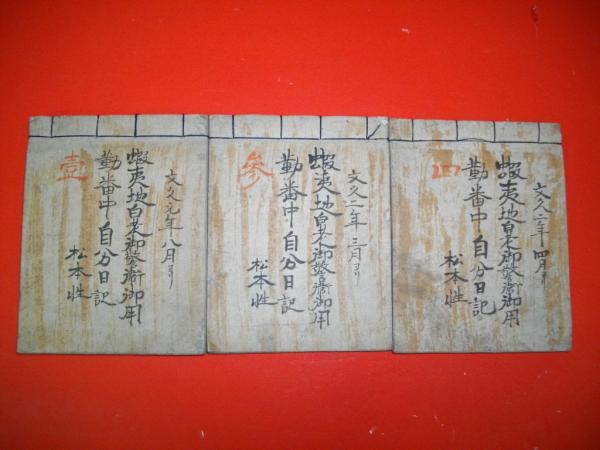 文久元年八月ヨリ
蝦夷地白老御警衛御用
勤番中自分日記
松本性
壹
文久二年三月ヨリ
蝦夷地白老御警衛御用
勤番中自分日記
松本性
參
文久二年四月ヨリ
蝦夷地白老御警衛御用
勤番中自分日記
松本性
四